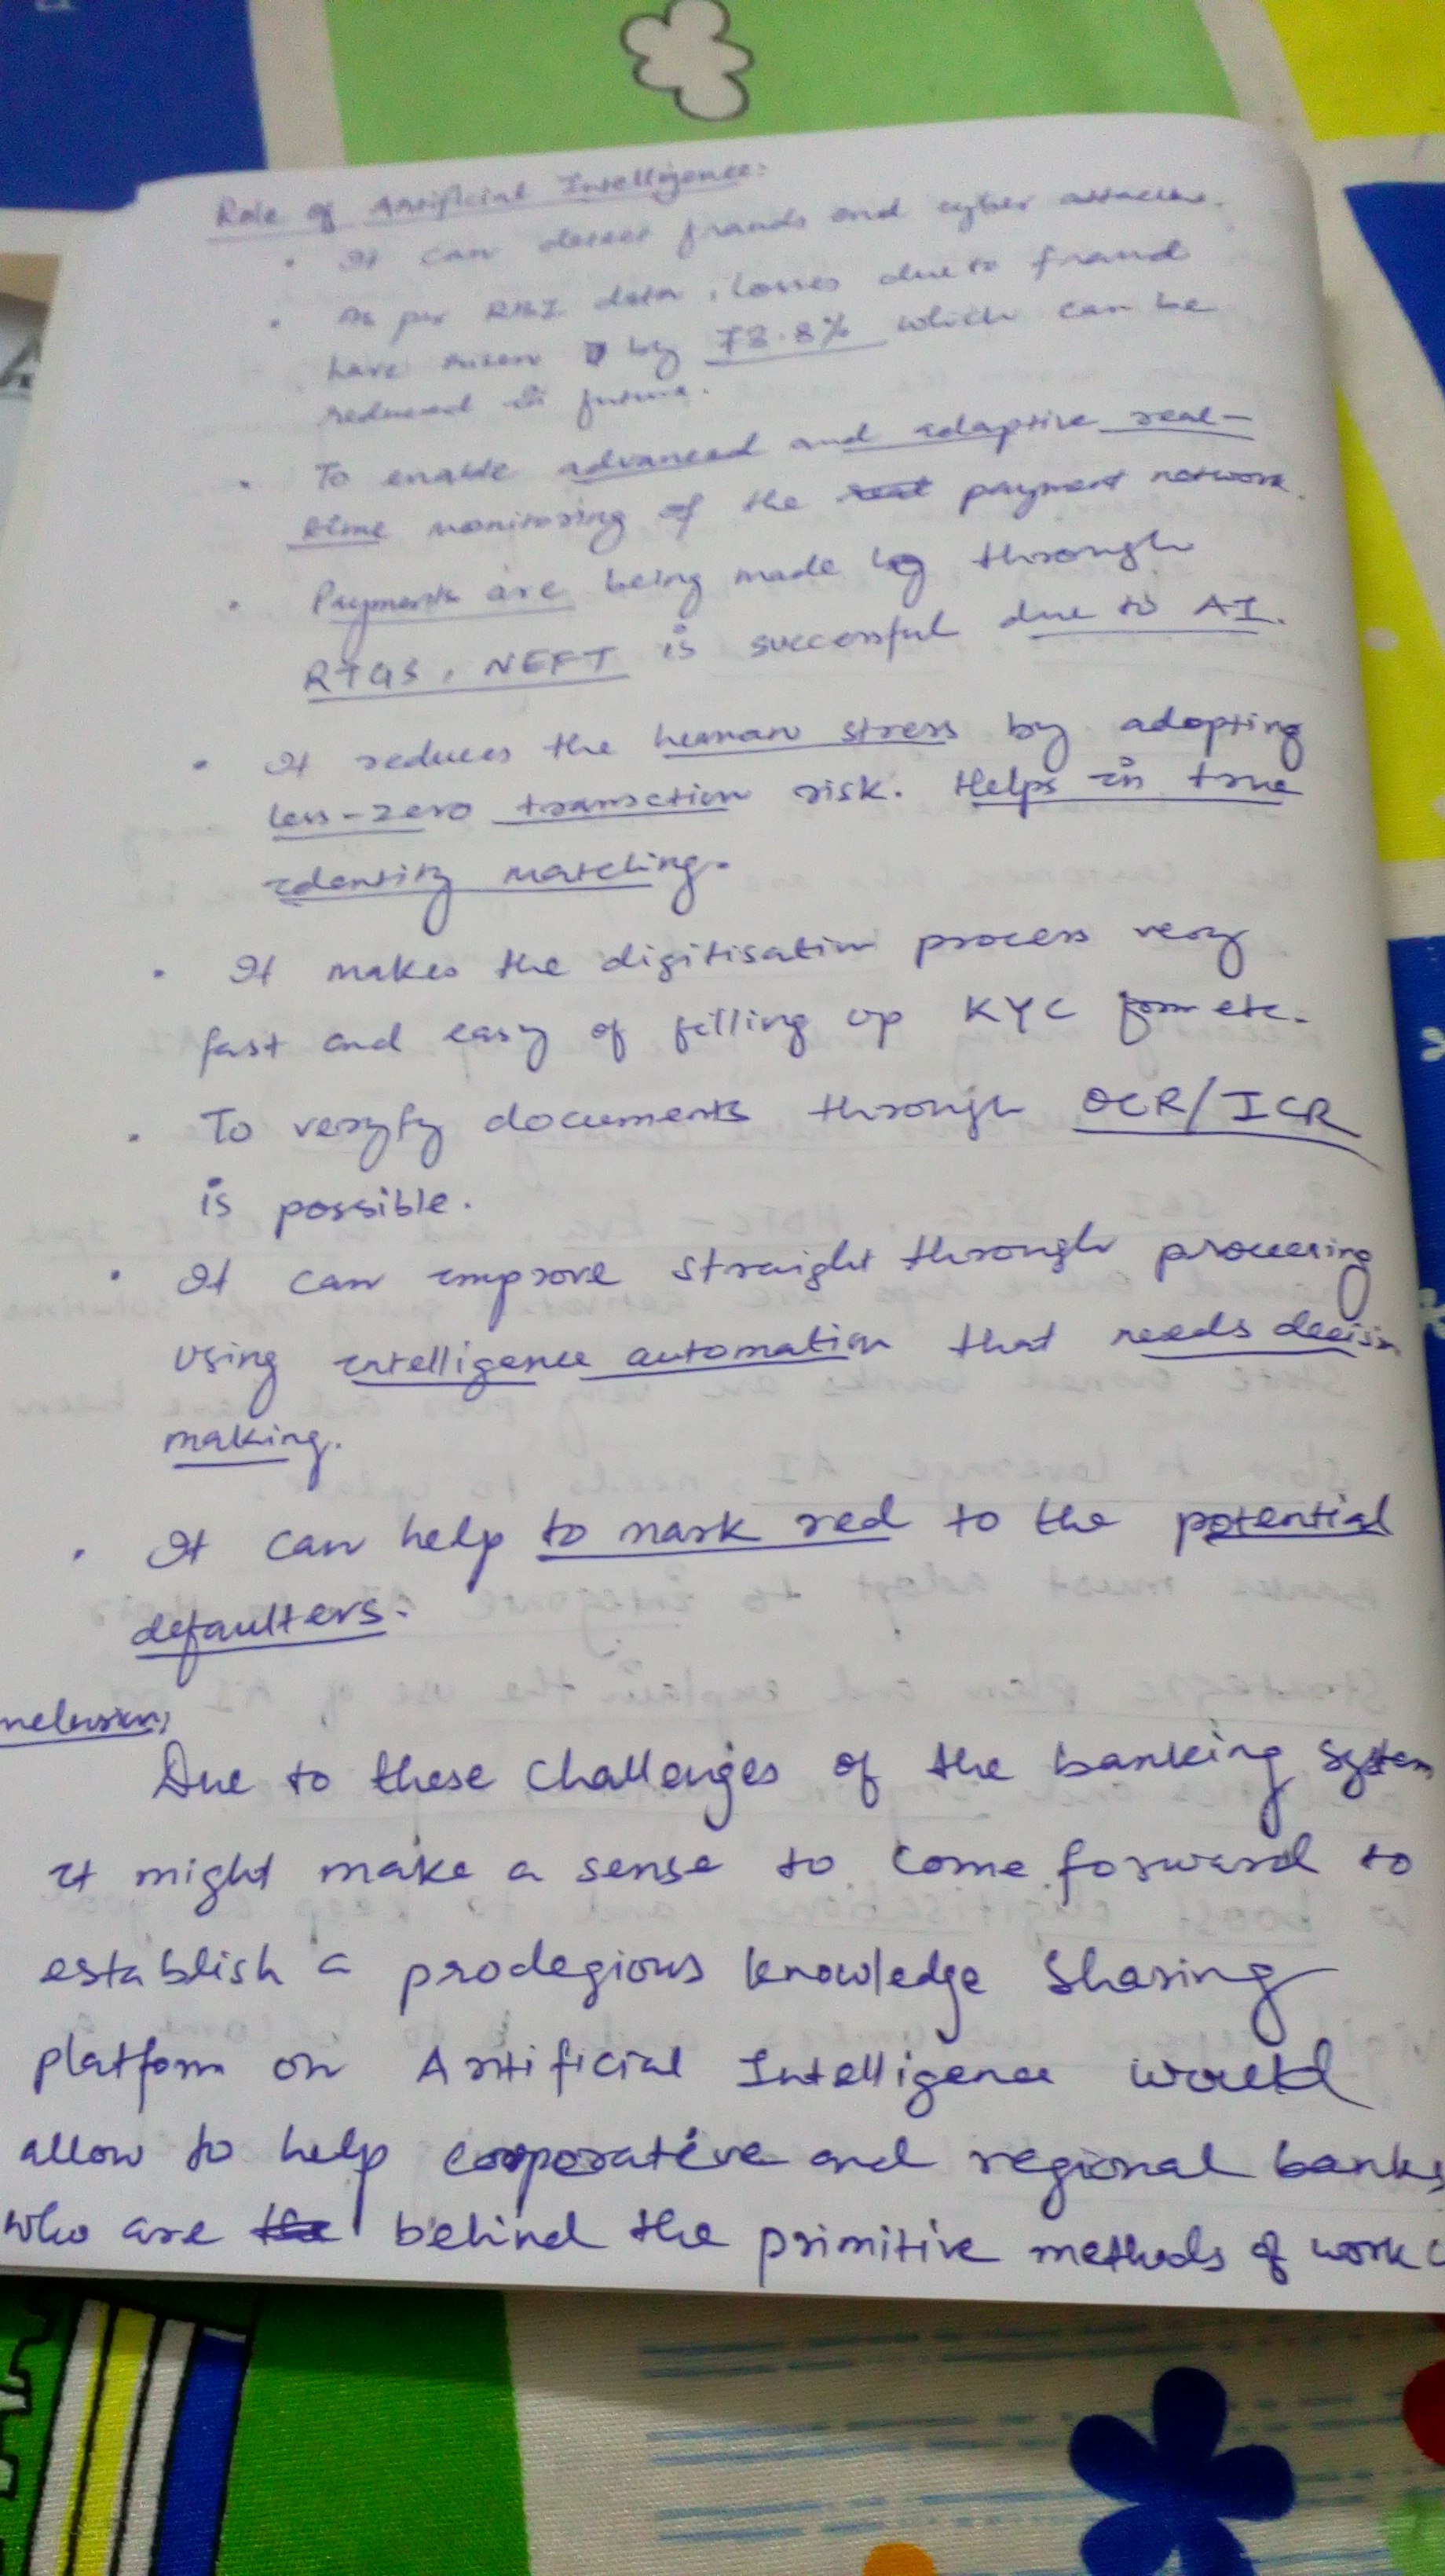 Role of Artificial Intelligence:
• It can detect frauds and cyber attacks.
• As per RBI data, losses due to fraud
have risen by 73.8% which can be
reduced in future.
• To enable advanced and adaptive real-
time monitoring of the payment network.
• Payments are being made by through
RTGS, NEFT is successful due to AI.
• It reduces the human stress by adopting
less-zero transaction risk. Helps in true
identity matching.
• It makes the digitisation process very
fast and easy of filling up KYC form etc.
• To veryfy documents through OCR/ICR
is possible.
• It can improve straight through processing
using intelligence automation that needs decision
making.
• It can help to mark red to the potential
defaulters.
nclusion:
Due to these challenges of the banking system
it might make a sense to come forward to
establish a prodegious knowledge sharing
platform on Artificial Intelligence would
allow to help corporative and regional banks
who are behind the primitive methods of work